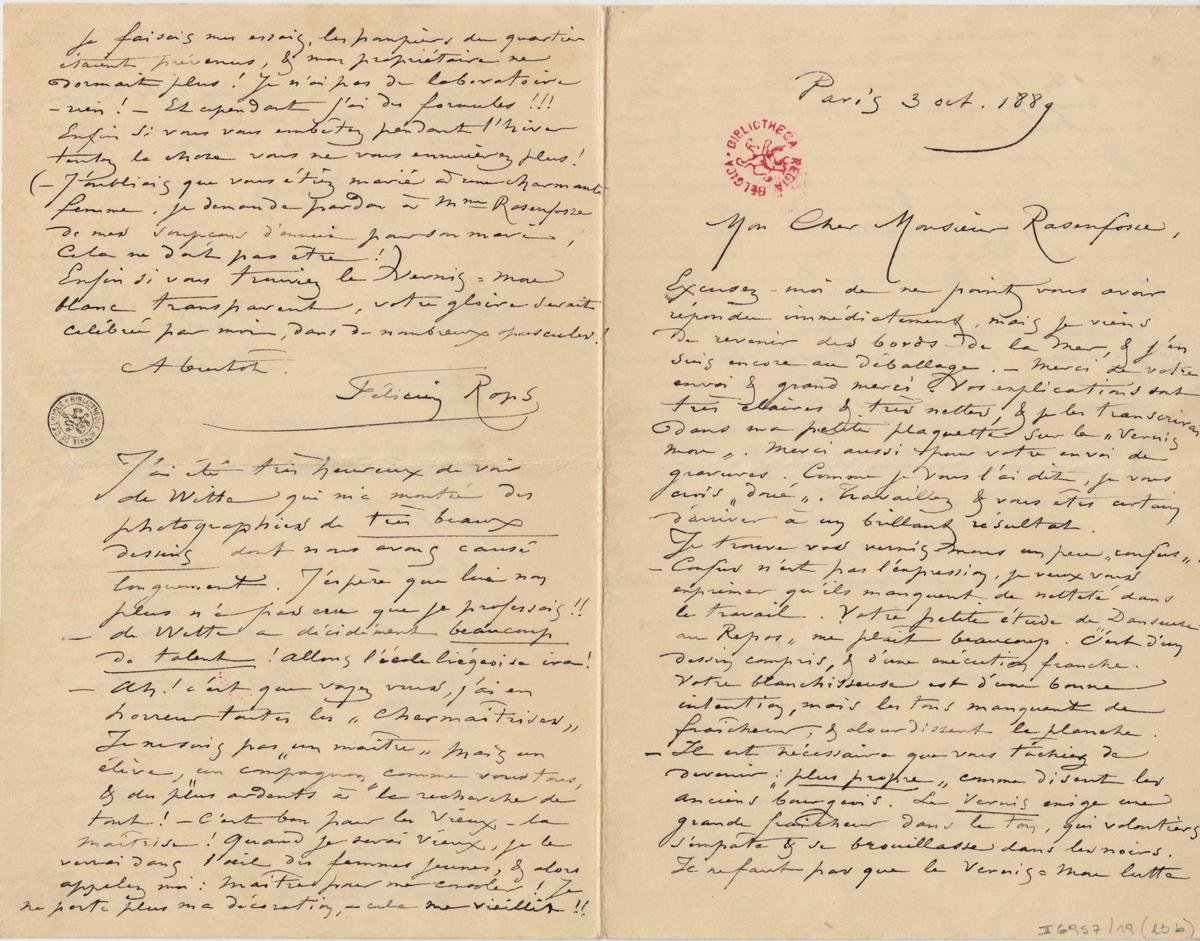 Paris 3 oct. 1889
BIBLIOTHECA REGIA BELGICA
Mon Cher Monsieur Rasenfosse,
Excusez-moi de ne point vous avoir
répondu immédiatement, mais je viens
de revenir des bords de la mer, & j'en
suis encore au déballage. — Merci de votre
envoi & grand merci. Vos explications sont
très claires & très nettes, & je les transcrirai
dans ma petite plaquette sur le „Vernis
mou„. Merci aussi pour votre envoi de
gravures. Comme je vous l'ai dit, je vous
crois „doué„. Travaillez & vous êtes certain
d'arriver à un brillant résultat.
Je trouve vos vernis mous un peu „confus„.
— Confus n'est pas l'expression, je veux vous
exprimer qu'ils manquent de netteté dans
le travail. Votre petite étude de Danseuse
au Repos„ me plaît beaucoup. C'est d'un
dessin compris, & d'une exécution franche.
Votre blanchisseuse est d'une bonne
intention, mais les tons manquent de
fraîcheur, & alourdissent la planche.
— Il est nécessaire que vous tâchiez de
devenir „plus propre„ comme disent les
anciens bourgeois. Le Vernis exige une
grande fraîcheur dans le ton, qui volontiers
s'empâte & se brouillasse dans les noirs.
Il ne faut pas que le Vernis=Mou lutte
II 6957/19 (25b)
Je faisais mes essais, les pompiers du quartier
étaient prévenus, & mon propriétaire ne
dormait plus! Je n'ai pas de laboratoire
— rien! — Et cependant j'ai des formules!!!
Enfin si vous vous embêtez pendant l'hiver
tentez la chose vous ne vous ennuierez plus!
(— J'oubliais que vous étiez marié à une charmante
femme. Je demande pardon à Mme Rasenfosse
de mes soupçons d'ennui pour son mari,
Cela ne doit pas être!)
Enfin si vous trouviez le Vernis=mou
blanc transparent, votre gloire serait
célébrée par moi, dans de nombreux opuscules!
A bientôt.
Félicien Rops
BIBLIOTHÈQUE ROYALE DE BELGIQUE
J'ai été très heureux de voir
de Witte qui m'a montré des
photographies de très beaux
dessins dont nous avons causé
longuement. J'espère que lui non
plus n'a pas cru que je professais!!
— de Witte a décidément beaucoup
de talent! Allons l'école liégeoise ira!
— Ah! c'est que voyez vous, j'ai en
horreur toutes les „chermaîtrises„
Je ne suis pas „un maître„ mais un
élève, un compagnon comme vous tous,
& des plus ardents à la recherche de
tout! — C'est bon pour les vieux — la
maîtrise! Quand je serai vieux, je le
verrai dans l'œil des femmes jeunes, & alors
appelez moi: Maître pour me consoler! Je
ne porte plus ma décoration, — cela me vieillit!!